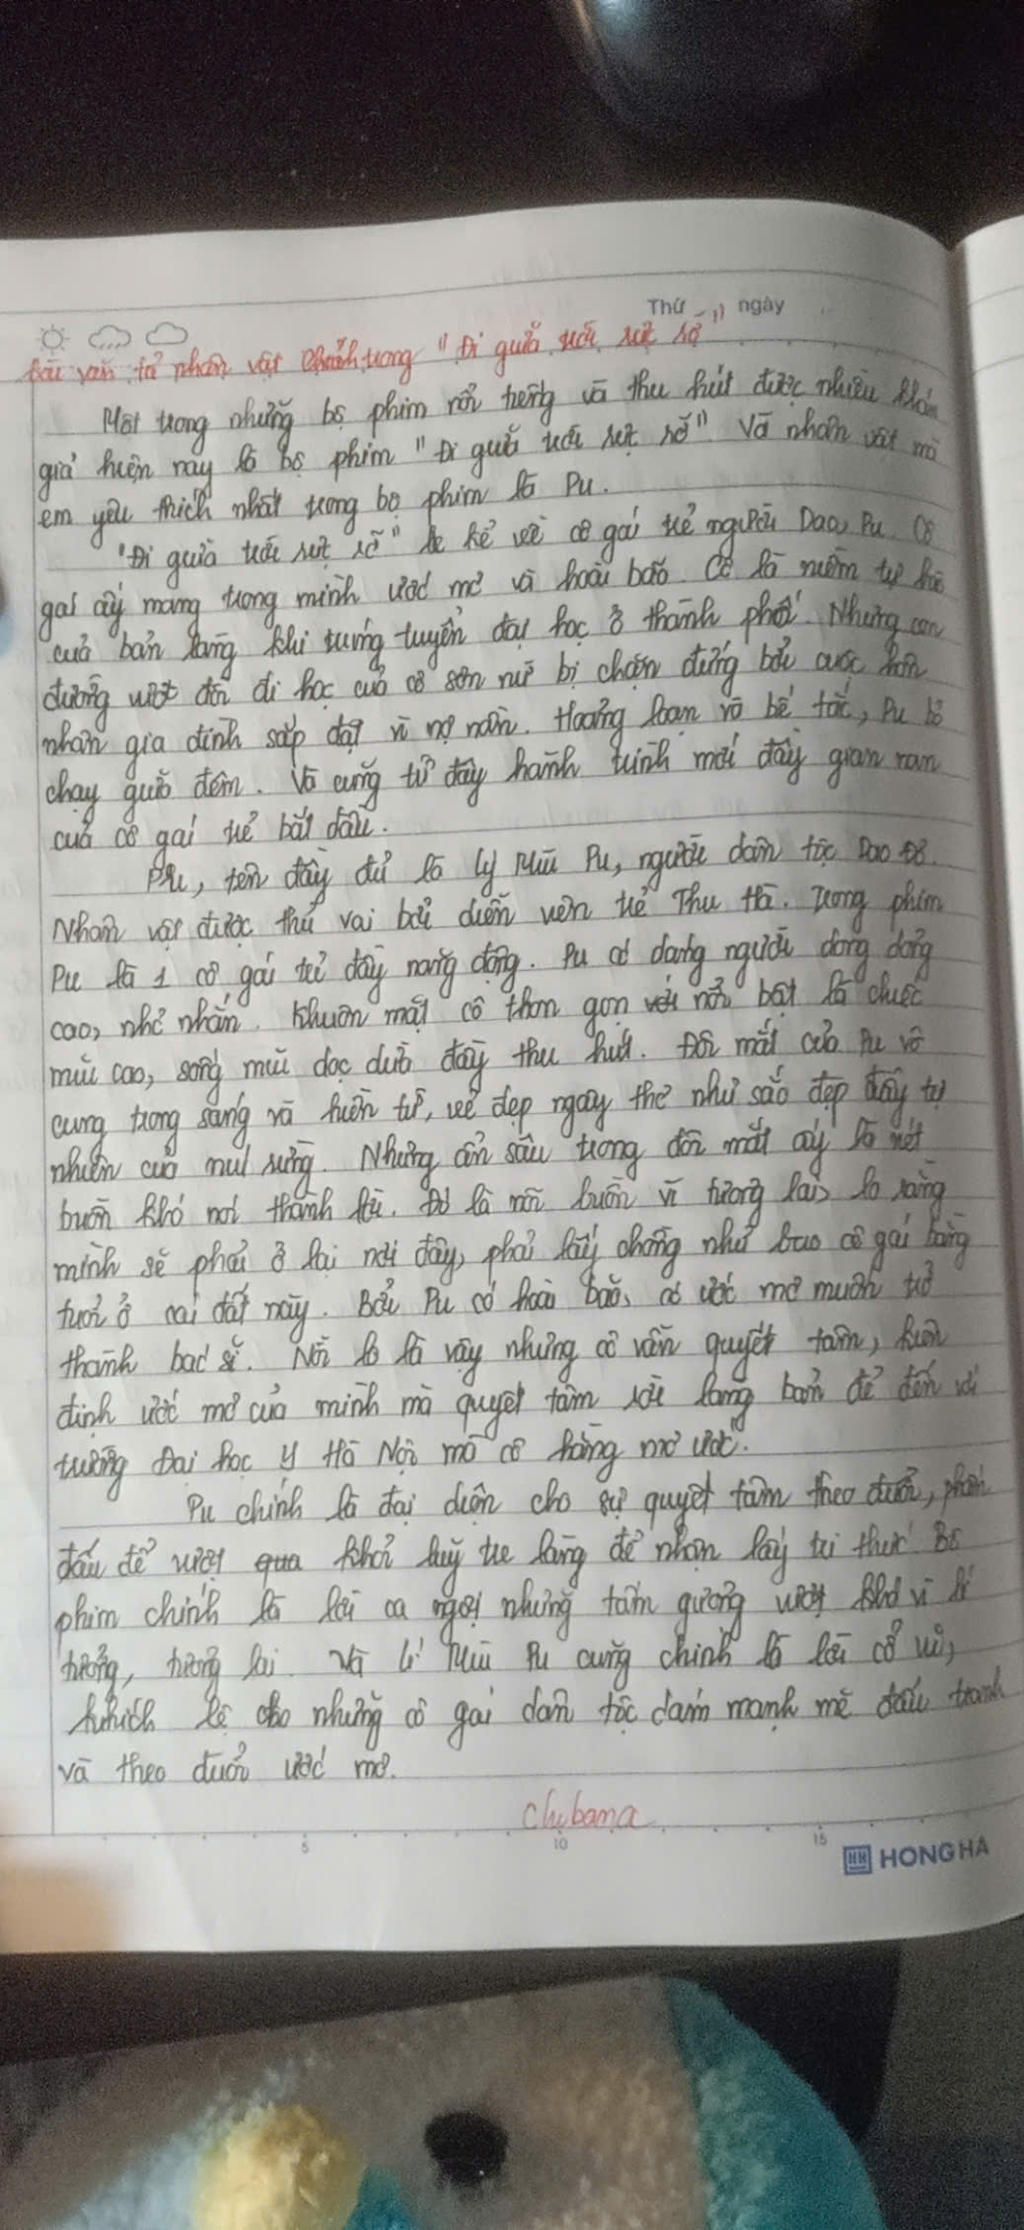 Thứ ngày
Bài văn tả nhân vật chính trong "Đi giữa trời rực rỡ"
Một trong những bộ phim nổi tiếng và thu hút được nhiều khán
giả hiện nay là bộ phim "Đi giữa trời rực rỡ". Và nhân vật mà
em yêu thích nhất trong bộ phim là Pu.
"Đi giữa trời rực rỡ" kể về cô gái trẻ người Dao, Pu. Cô
gái ấy mang trong mình ước mơ và hoài bão. Cô là niềm tự hào
của bản làng khi trúng tuyển đại học ở thành phố. Nhưng con
đường vượt đồi đi học của cô sơn nữ bị chặn đứng bởi cuộc hôn
nhân gia đình sắp đặt vì nợ nần. Hoảng loạn và bế tắc, Pu bỏ
chạy giữa đêm. Và cũng từ đây hành trình mới đầy gian nan
của cô gái trẻ bắt đầu.
Pu, tên đầy đủ là Lý Mùi Pu, người dân tộc Dao Đỏ.
Nhân vật được thủ vai bởi diễn viên trẻ Thu Hà. Trong phim
Pu là 1 cô gái trẻ đầy năng động. Pu có dáng người dong dỏng
cao, nhỏ nhắn. Khuôn mặt cô thon gọn với nổi bật là chiếc
mũi cao, sống mũi dọc dừa đầy thu hút. Đôi mắt của Pu vô
cùng trong sáng và hiền từ, vẻ đẹp ngây thơ như sắc đẹp đầy tự
nhiên của núi rừng. Nhưng ẩn sâu trong đôi mắt ấy là nét
buồn khó nói thành lời. Đó là nỗi buồn vì tương lai, lo rằng
mình sẽ phải ở lại nơi đây, phải lấy chồng như bao cô gái bằng
tuổi ở cái đất này. Bởi Pu có hoài bão, có ước mơ muốn trở
thành bác sĩ. Nỗi lo là vậy nhưng cô vẫn quyết tâm, kiên
định ước mơ của mình mà quyết tâm rời làng bản để đến với
trường Đại học Y Hà Nội mà cô hằng mơ ước.
Pu chính là đại diện cho sự quyết tâm theo đuổi, phấn
đấu để vượt qua khỏi luỹ tre làng để nhận lấy tri thức. Bộ
phim chính là lời ca ngợi những tấm gương vượt khó vì lí
tưởng, tương lai. Và Lí Mùi Pu cũng chính là lời cổ vũ,
khích lệ cho những cô gái dân tộc dám mạnh mẽ đấu tranh
và theo đuổi ước mơ.
Chubana
5 10 15
HONG HA